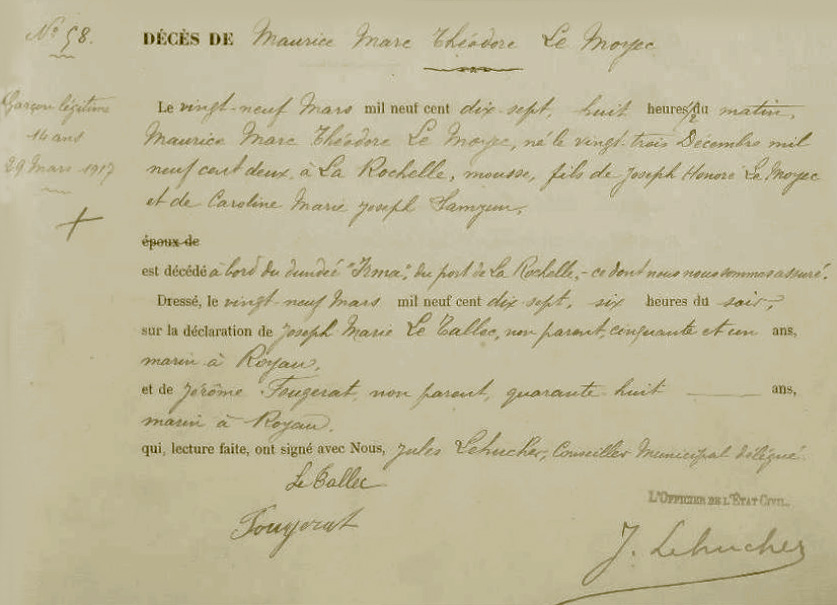 N° 58.
DÉCÈS DE Maurice Marc Théodore Le Moyec
Garçon légitime
14 ans
29 Mars 1917
Le vingt-neuf Mars mil neuf cent dix-sept, huit heures 1/2 du matin,
Maurice Marc Théodore Le Moyec, né le vingt-trois Décembre mil
neuf cent deux, à La Rochelle, mousse, fils de Joseph Honoré Le Moyec
et de Caroline Marie Joseph
époux de
est décédé à bord du dundée "Irma", du port de La Rochelle,- ce dont nous nous sommes assuré.
Dressé, le vingt-neuf Mars mil neuf cent dix-sept, six heures du soir,
sur la déclaration de Joseph Marie Le Tallec, non parent, cinquante et un ans,
marin à Royan,
et de Jérôme Fougerat, non parent, quarante-huit ans,
marin à Royan.
qui, lecture faite, ont signé avec Nous, Jules Lehucher, Conseiller Municipal délégué.
Le Tallec
L'OFFICIER DE L'ÉTAT CIVIL,
Fougerat
J. Lehucher